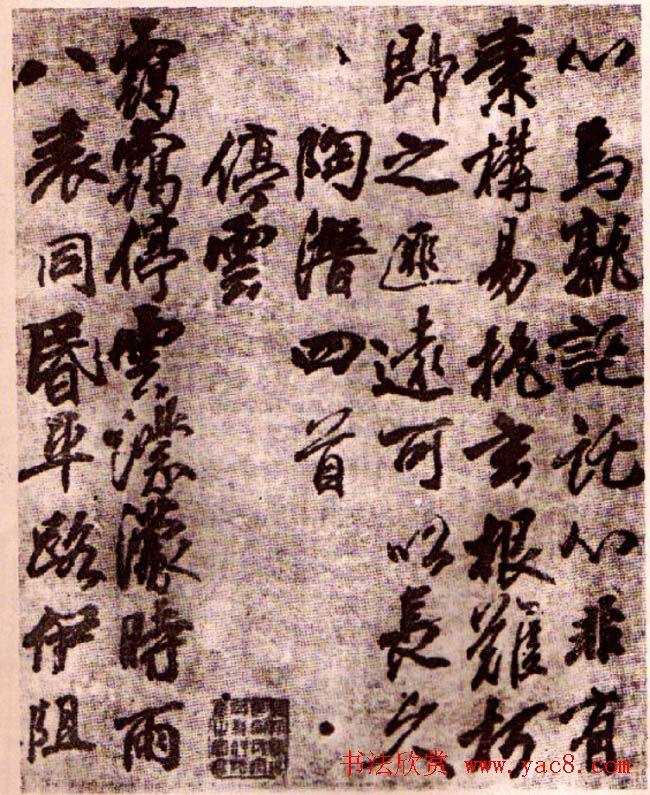 心焉孰託託心非有
素構易抱玄根難朽
即之匪遠可以長久
陶潛四首
停雲
靄靄停雲濛濛時雨
八表同昏平路伊阻
书法欣赏 www.yac8.com